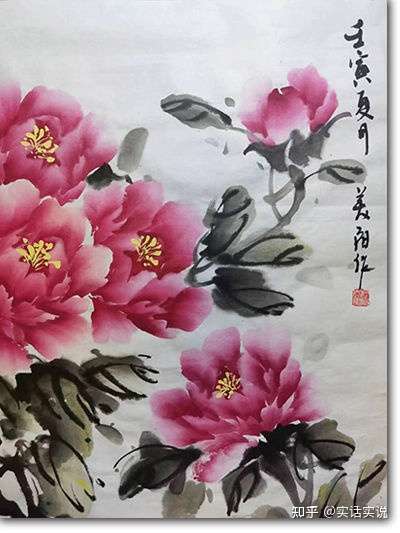 壬寅夏月
美阳作
知乎 @实话实说